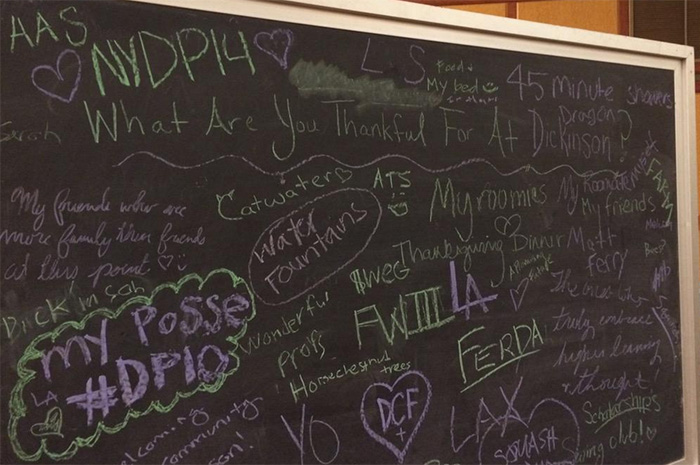 AAS
NYDP14
L S
Food +
My bed
45 minute showers
Sarah
What Are You Thankful For At Dickinson?
Dragon
Catwater
ATS
My roomies
My Roommate
My friends
FARM
My friends who are
more family than friends
at this point
Water
Fountains
Thanksgiving Dinner
Matt
ferry
$WEG
LA
Dickinson
my Posse
#DP10
LA
Wonderful
Profs
FWIII
FERDA
the ones who
truly embrace
higher learning
& thought!
Homechestnut
trees
Scholarships
DCF
+
YO
LAX
SQUASH
club!